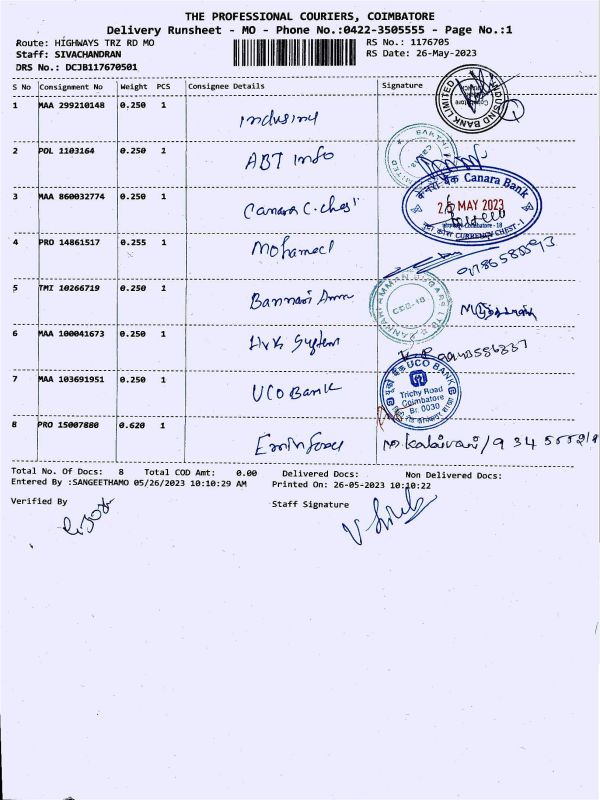 THE PROFESSIONAL COURIERS, COIMBATORE
Delivery Runsheet - MO - Phone No.:0422-3505555 - Page No.:1
Route: HIGHWAYS TRZ RD MO
RS No.: 1176705
Staff: SIVACHANDRAN
RS Date: 26-May-2023
DRS No.: DCJB117670501
S No Consignment No Weight PCS Consignee Details Signature
1 MAA 299210148 0.250 1
INDUSIND BANK LIMITED
Coimbatore
2 POL 1103164 0.250 1 ABT Info
3 MAA 860032774 0.250 1 Canara C. chest
केनरा बैंक Canara Bank
MAY 2023
CURRENCY CHEST - I
4 PRO 14861517 0.255 1 Mohamed
5 TMI 10266719 0.250 1 Bannari Amm
6 MAA 100041673 0.250 1 System
7 MAA 103691951 0.250 1 UCO Bank
UCO BANK
Trichy Road
Coimbatore
Br. 0030
8 PRO 15007880 0.620 1
Total No. Of Docs: 8 Total COD Amt: 0.00 Delivered Docs: Non Delivered Docs:
Entered By :SANGEETHAMO 05/26/2023 10:10:29 AM Printed On: 26-05-2023 10:10:22
Verified By
Staff Signature